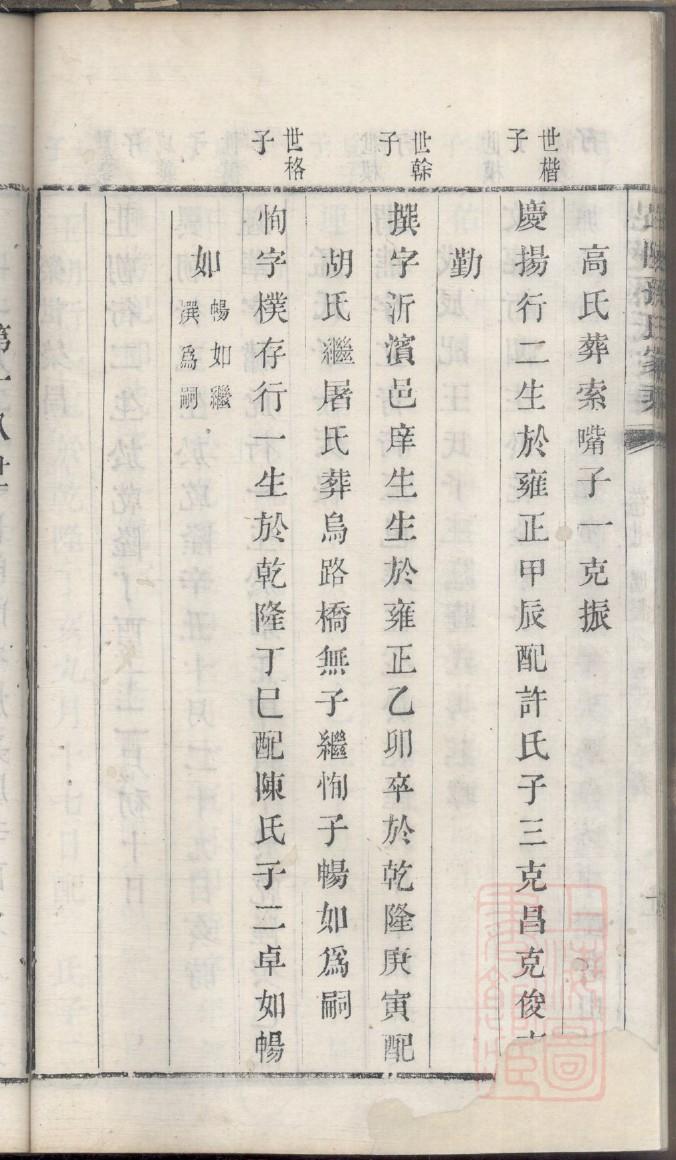 高氏葬索嘴子一克振
世楷子
慶揚行二生於雍正甲辰配許氏子三克昌克俊
勤
世榦子
撰字沂濱邑庠生生於雍正乙卯卒於乾隆庚寅配
胡氏繼屠氏葬烏路橋無子繼恂子暢如為嗣
世格子
恂字樸存行一生於乾隆丁巳配陳氏子二卓如暢
如 暢如繼撰為嗣